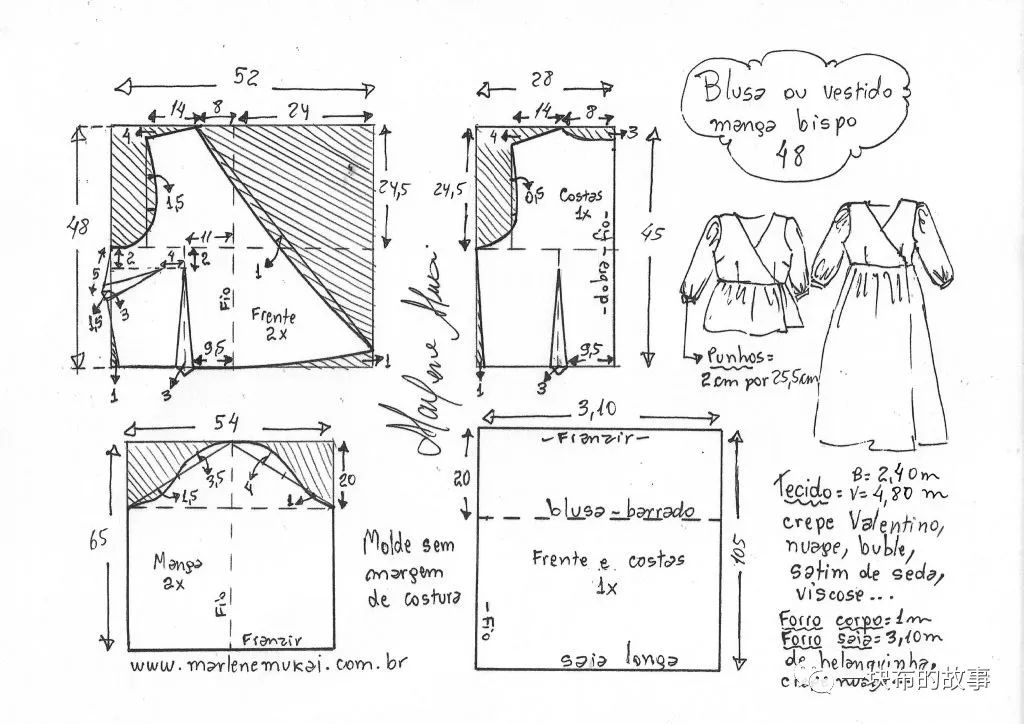 52
14
8
24
4
1,5
48
24,5
11
2
4
2
5
3
1,5
1
Fio
Frente
2x
9,5
1
3
1
28
14
8
4
3
24,5
0,5
Costas
1x
-dobra-fio-
45
9,5
1
3
Blusa ou vestido
manga bispo
48
Punhos=
2cm por 25,5cm
Marlene Mukai.
54
3,5
4
1,5
1
20
65
Manga
2x
Fio
Franzir
www.marlenemukai.com.br
Molde sem
margem
de costura
3,10
-Franzir-
20
blusa-barrado
Frente e costas
1x
-Fio-
105
saia longa
B=2,40m
Tecido=V=4,80 m
crepe Valentino,
nuage, buble,
satim de seda,
viscose...
Forro corpo=1m
Forro saia=3,10m
de helanquinha,
一块布的故事